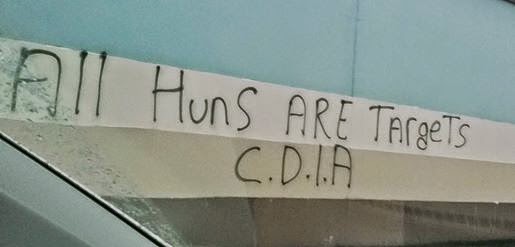 All Huns ARE TArgeTs
C.D.I.A